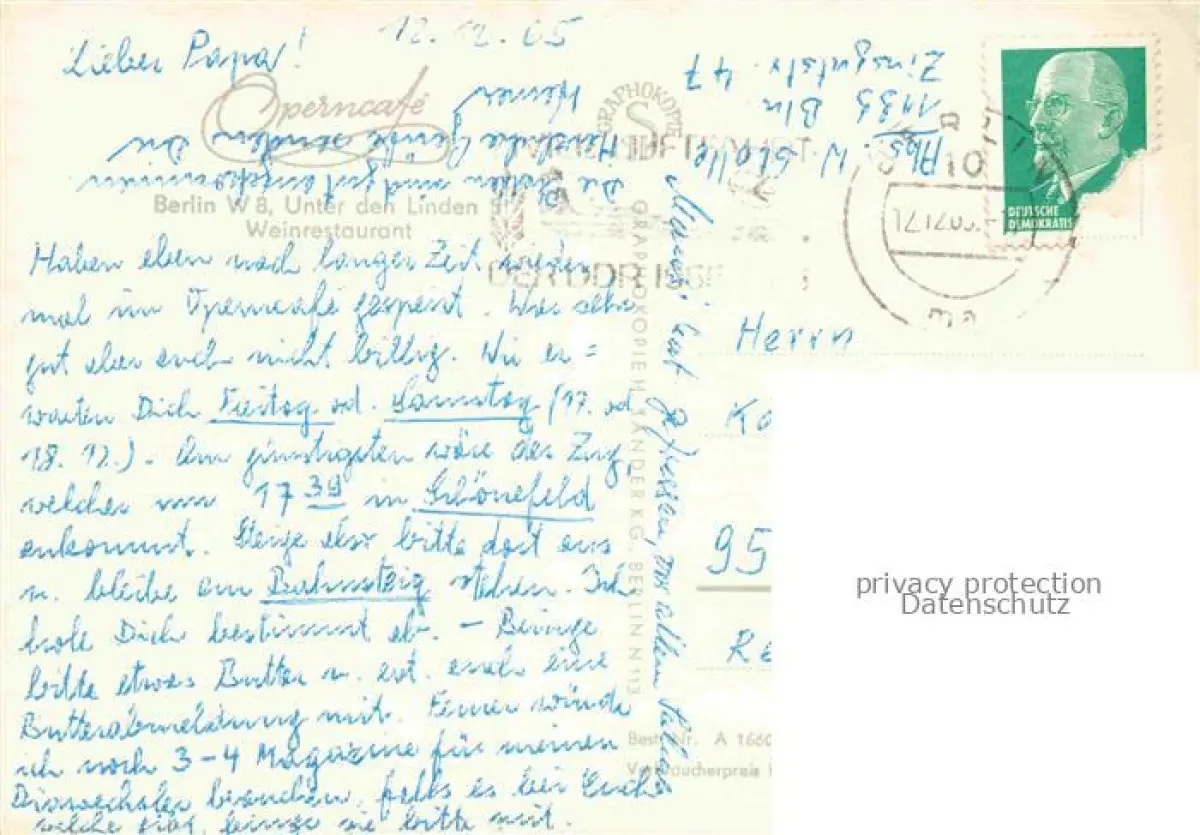 12.12.65
Lieber Papa!
Operncafé
Berlin W 8, Unter den Linden 5
Weinrestaurant
Haben eben nach langer Zeit wieder
mal im Operncafé gespeist. War sehr
gut aber auch nicht billig. Wir er=
warten Dich Freitag od. Samstag (17. od
18.12.). Am günstigsten wäre der Zug,
welcher um 17 39 in Schönefeld
ankommt. Steige also bitte dort aus
u. bleibe am Bahnsteig stehen. Ich
hole Dich bestimmt ab. – Bringe
bitte etwas Butter u. evt. auch eine
Butterabmeldung mit. Ferner würde
ich noch 3-4 Magazine für meinen
Diawechsler brauchen, falls es bei Euch
welche gibt, bringe sie bitte mit.
Die Socken sind gut angekommen.
Herzliche Grüße senden Dir
Werner
Abs. W. Stolle
1195 Bln
47
GRAPHOKOPIE
GRAPHOKOPIE H. SANDER K.G., BERLIN N 113
DER DDR
DEUTSCHE
DEMOKRATIS
10
Herrn
95
Re
Best. Nr. A 1660
Verbraucherpreis
privacy protection
Datenschutz